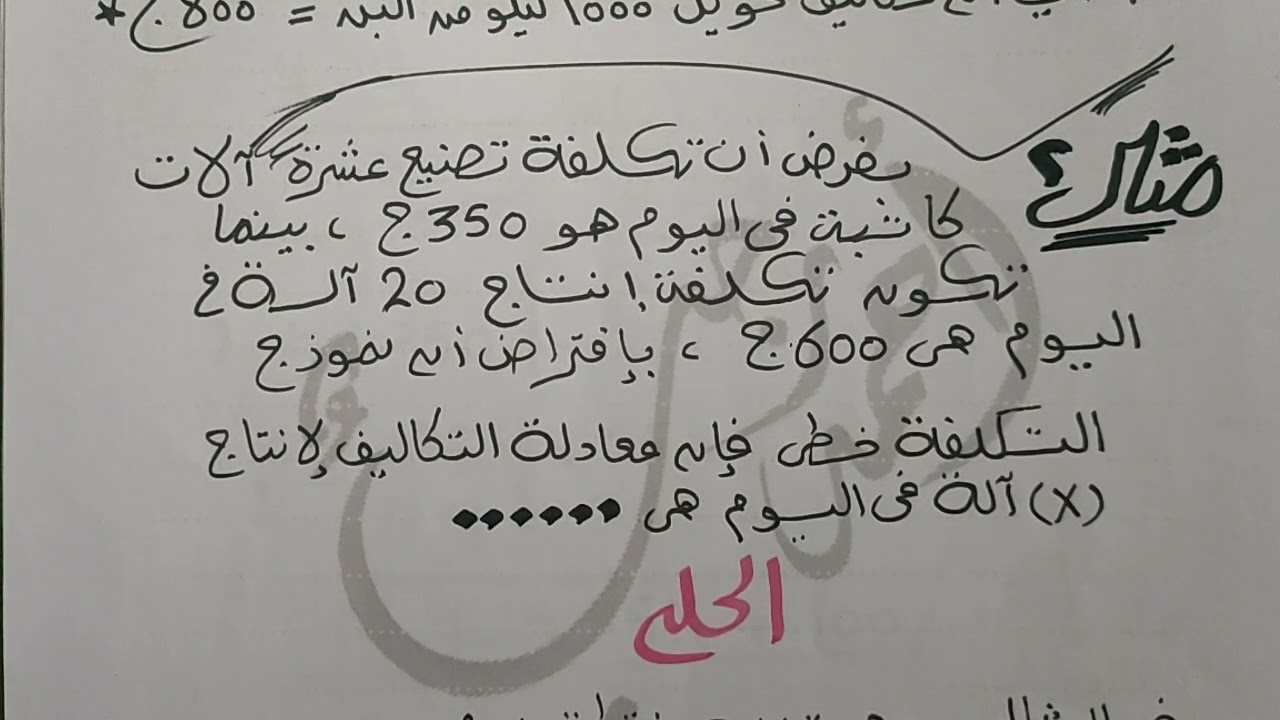 تكاليف تحويل 1000 كيلو من البن = 800 ج *
مثال؟
بفرض أن تكلفة تصنيع عشرة آلات
كاتبة فى اليوم هو 350 ج ، بينما
تكون تكلفة إنتاج 20 آلة فى
اليوم هى 600 ج ، بإفتراض أن نموذج
التكلفة خطى فإن معادلة التكاليف لإنتاج
(X) آلة فى اليوم هى ......
الحل